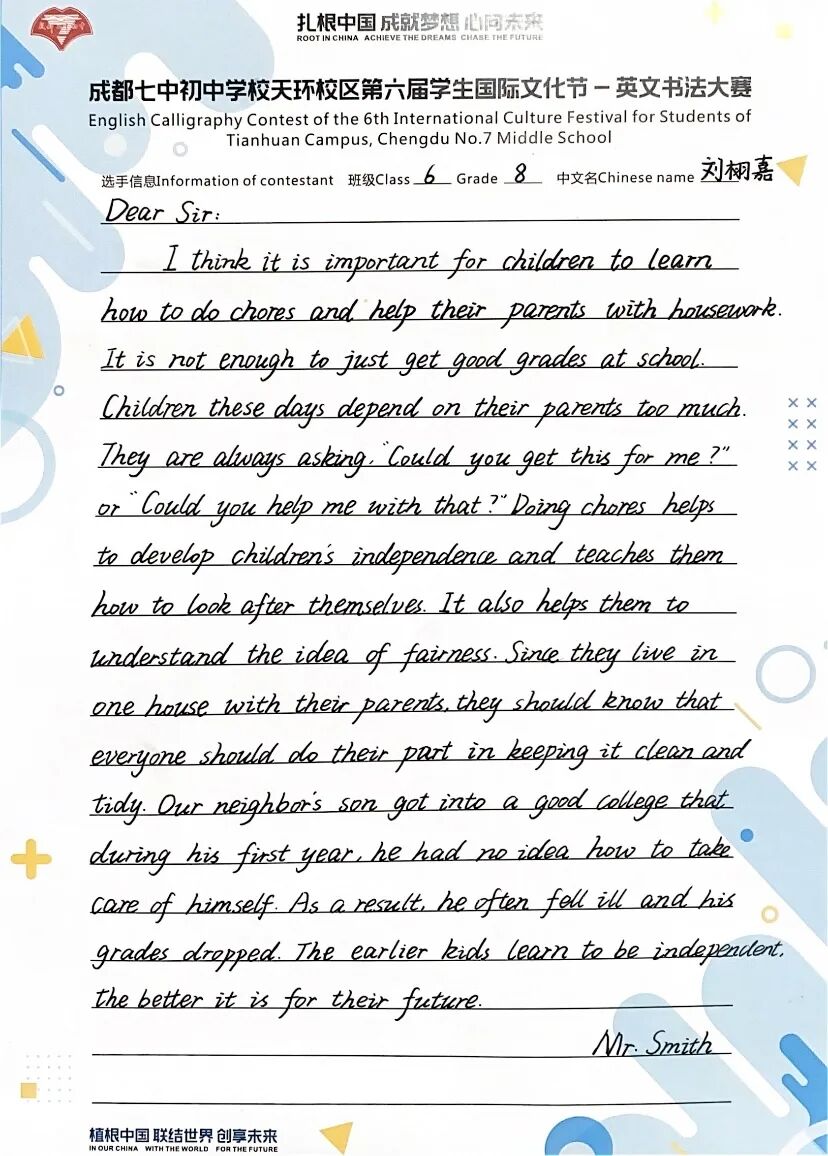 扎根中国 成就梦想 心向未来
ROOT IN CHINA ACHIEVE THE DREAMS CHASE THE FUTURE
成都七中初中学校天环校区第六届学生国际文化节－英文书法大赛
English Calligraphy Contest of the 6th International Culture Festival for Students of
Tianhuan Campus, Chengdu No.7 Middle School
选手信息Information of contestant 班级Class 6 Grade 8 中文名Chinese name 刘栩嘉
Dear Sir:
I think it is important for children to learn
how to do chores and help their parents with housework.
It is not enough to just get good grades at school.
Children these days depend on their parents too much.
They are always asking, "Could you get this for me?"
or "Could you help me with that?" Doing chores helps
to develop children's independence and teaches them
how to look after themselves. It also helps them to
understand the idea of fairness. Since they live in
one house with their parents, they should know that
everyone should do their part in keeping it clean and
tidy. Our neighbor's son got into a good college that
during his first year, he had no idea how to take
care of himself. As a result, he often fell ill and his
grades dropped. The earlier kids learn to be independent,
the better it is for their future.
Mr. Smith
植根中国 联结世界 创享未来
IN OUR CHINA WITH THE WORLD FOR THE FUTURE